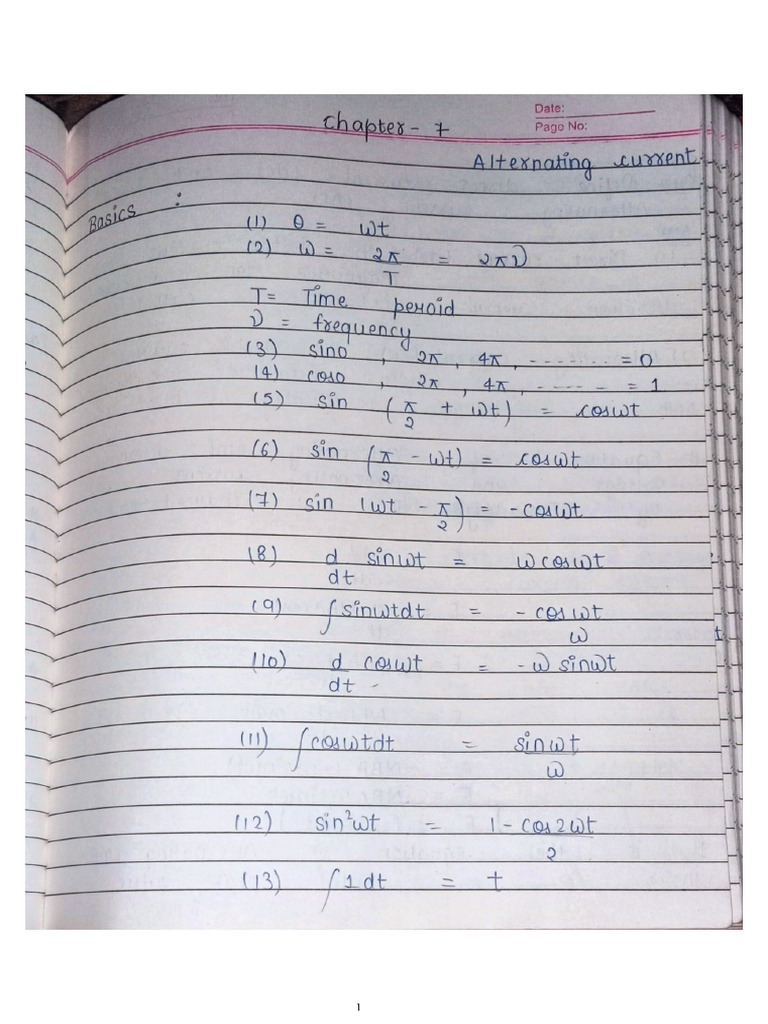 Date:
Page No:
Chapter - 7
Alternating current
Basics :
(1) θ = ωt
(2) ω = 2π/T = 2πν
T = Time peroid
ν = frequency
(3) sin0, 2π, 4π, ------ = 0
(4) cos0, 2π, 4π, ------ = 1
(5) sin (π/2 + ωt) = cosωt
(6) sin (π/2 - ωt) = cosωt
(7) sin (ωt - π/2) = -cosωt
(8) d/dt sinωt = ωcosωt
(9) ∫sinωtdt = -cosωt/ω
(10) d/dt cosωt = -ω sinωt
(11) ∫cosωtdt = sinωt/ω
(12) sin²ωt = 1 - cos2ωt/2
(13) ∫1dt = t
1